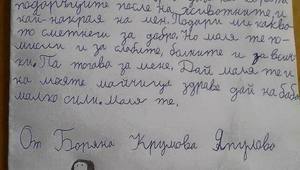 подаръците после на животните, и
най-накрая на мен. Подари ми каквото
то сметнеш за добро. Но моля те по-
мисли и за слабите, болните и за всич
ки. Па тогава за мене. Дай моля те и
на моята майчица здраве дай на баба
малко сили. Моля те.
От Боряна Крумова Япулово